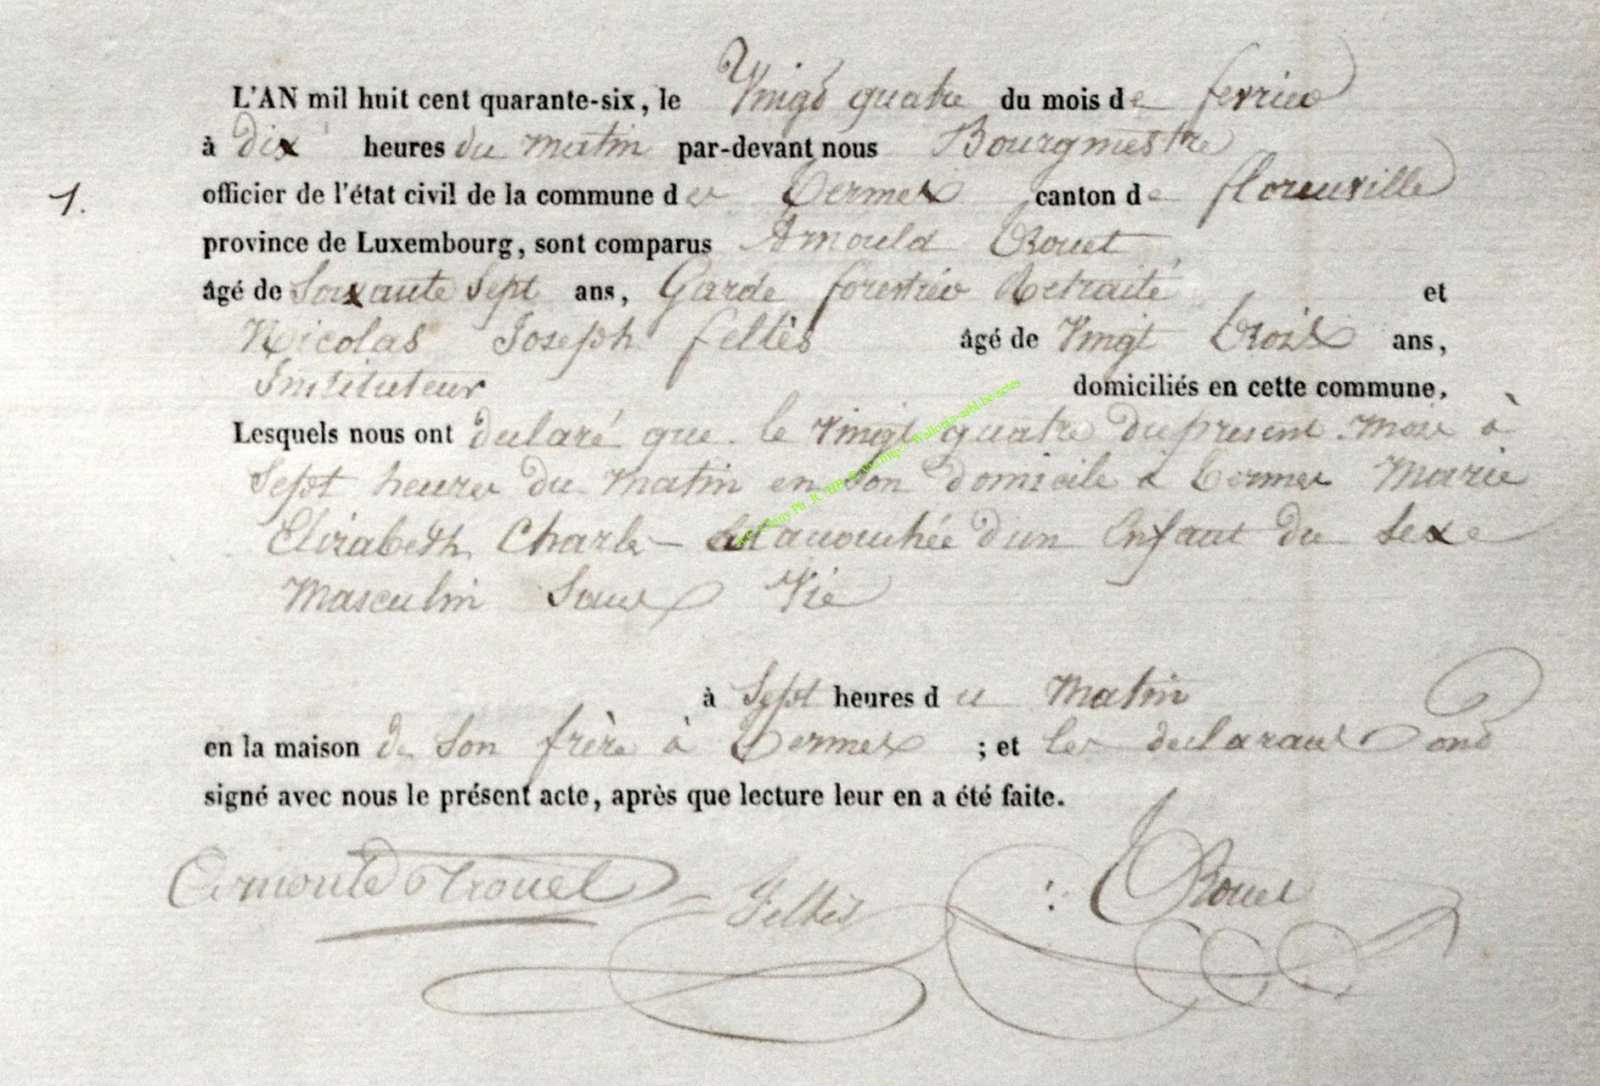 L'AN mil huit cent quarante-six, le Vingt quatre du mois de fevrier
à dix heures du matin par-devant nous Bourgmestre
1. officier de l'état civil de la commune de Termes canton de florenville
province de Luxembourg, sont comparus Arnould Trouet
âgé de Soixante Sept ans, Garde forestier Retraité et
Nicolas Joseph feltès âgé de Vingt Trois ans,
Instituteur domiciliés en cette commune,
Lesquels nous ont declaré que le vingt quatre du present mois à
Sept heures du matin en son domicile a Termes Marie
Elizabeth Charle est acouchée d'un Enfant du Sexe
Masculin Sans Vie
à Sept heures du Matin
en la maison de Son frère à Termes ; et les declarans ont
signé avec nous le présent acte, après que lecture leur en a été faite.
Trouet Feltès Trouet